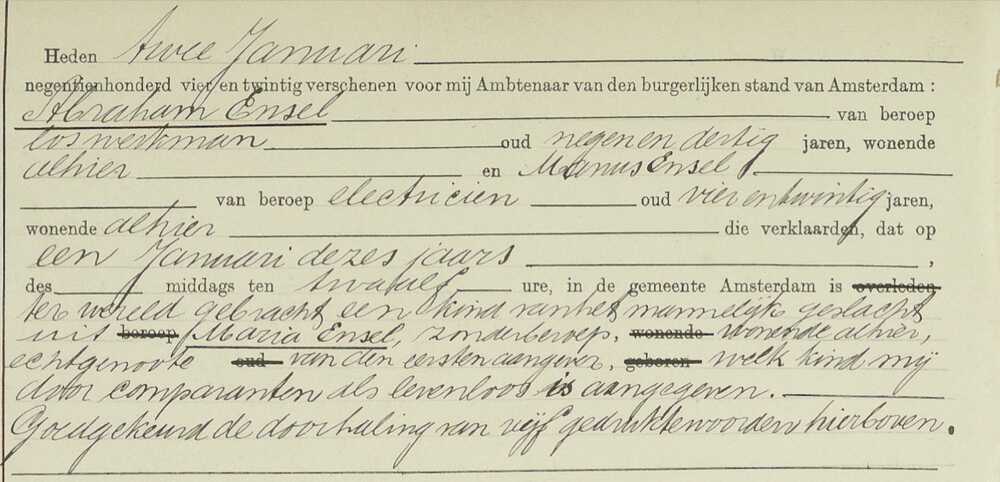 Heden twee Januari
negentienhonderd vier en twintig verschenen voor mij Ambtenaar van den burgerlijken stand van Amsterdam :
Abraham Ensel van beroep
loswerkman oud negen en dertig jaren, wonende
alhier en Manus Ensel
van beroep electricien oud vier en twintig jaren,
wonende alhier die verklaarden, dat op
een Januari dezes jaars ,
des middags ten twaalf ure, in de gemeente Amsterdam is overleden
ter wereld gebracht een kind van het mannelijk geslacht
uit beroep Maria Ensel, zonder beroep, wonende wonende alhier,
echtgenoote oud van den eersten aangever, geboren welk kind mij
door comparanten als levenloos is aangegeven.
Goedgekeurd de doorhaling van vijf gedrukte woorden hierboven.